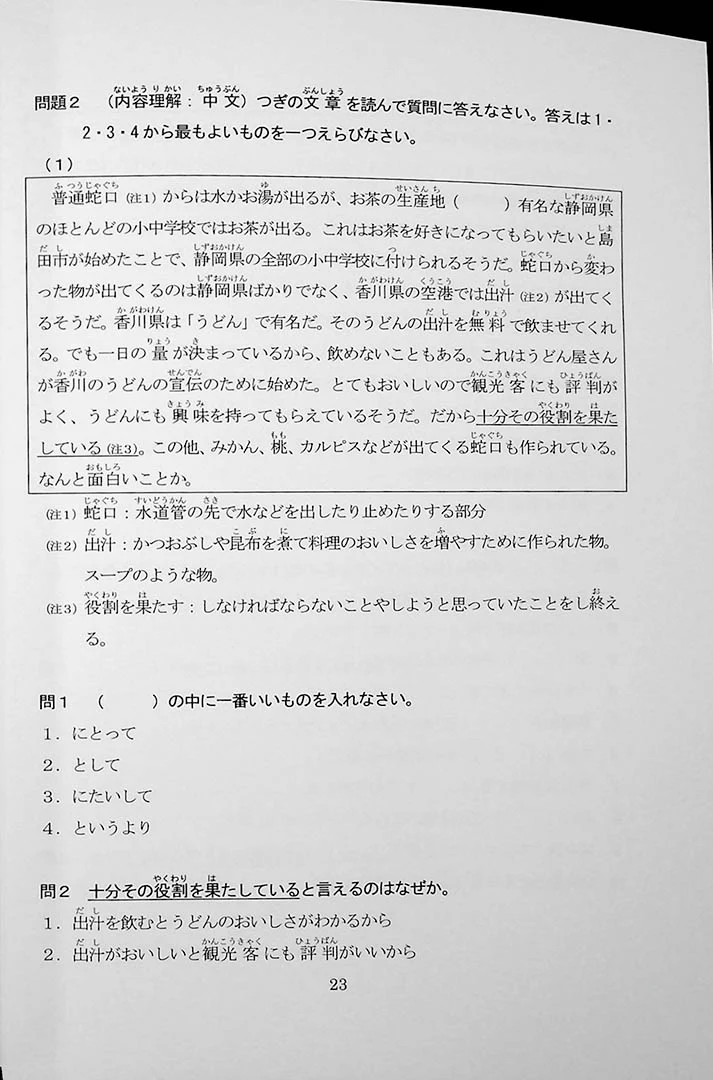 問題２　（内容理解：中文）つぎの文章を読んで質問に答えなさい。答えは１・
２・３・４から最もよいものを一つえらびなさい。
（１）
普通蛇口（注１）からは水かお湯が出るが、お茶の生産地（　　　）有名な静岡県
のほとんどの小中学校ではお茶が出る。これはお茶を好きになってもらいたいと島
田市が始めたことで、静岡県の全部の小中学校に付けられるそうだ。蛇口から変わ
った物が出てくるのは静岡県ばかりでなく、香川県の空港では出汁（注２）が出てく
るそうだ。香川県は「うどん」で有名だ。そのうどんの出汁を無料で飲ませてくれ
る。でも一日の量が決まっているから、飲めないこともある。これはうどん屋さん
が香川のうどんの宣伝のために始めた。とてもおいしいので観光客にも評判が
よく、うどんにも興味を持ってもらえているそうだ。だから十分その役割を果た
している（注３）。この他、みかん、桃、カルピスなどが出てくる蛇口も作られている。
なんと面白いことか。
（注１）蛇口：水道管の先で水などを出したり止めたりする部分
（注２）出汁：かつおぶしや昆布を煮て料理のおいしさを増やすために作られた物。
スープのような物。
（注３）役割を果たす：しなければならないことやしようと思っていたことをし終え
る。
問１　（　　　）の中に一番いいものを入れなさい。
１．にとって
２．として
３．にたいして
４．というより
問２　十分その役割を果たしていると言えるのはなぜか。
１．出汁を飲むとうどんのおいしさがわかるから
２．出汁がおいしいと観光客にも評判がいいから
23